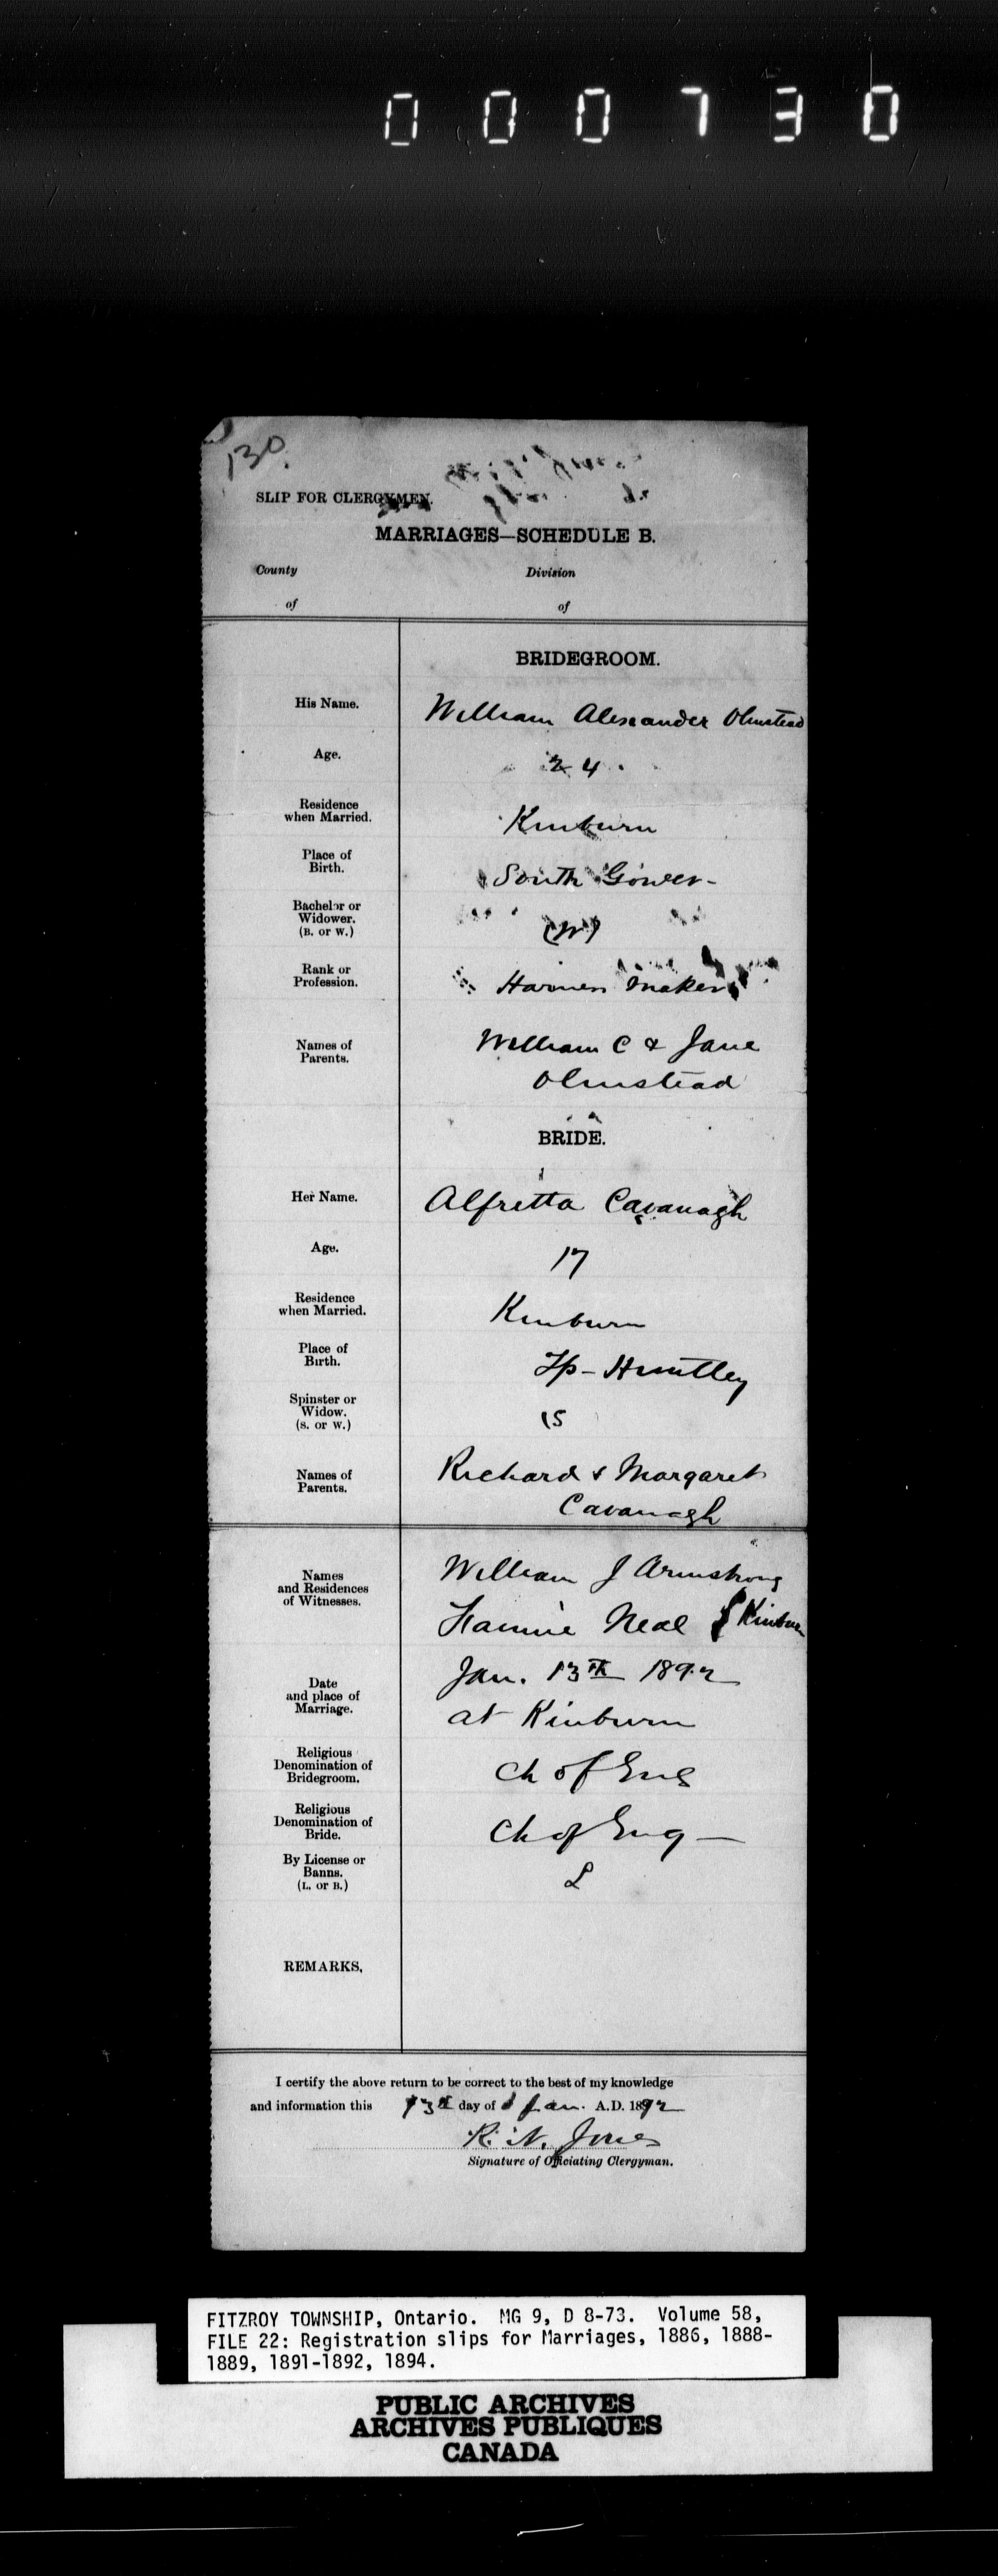 000730
130.
SLIP FOR CLERGYMEN.
MARRIAGES—SCHEDULE B.
County Division
of of
BRIDEGROOM.
His Name. William Alexander Olmstead
Age. 24.
Residence
when Married. Kinburn
Place of
Birth. South Gower-
Bachelor or
Widower.
(B. or W.) (W)
Rank or
Profession. Harness maker
Names of
Parents. William C & Jane
Olmstead
BRIDE.
Her Name. Alfretta Cavanagh
Age. 17
Residence
when Married. Kinburn
Place of
Birth. Tp- Huntley
Spinster or
Widow.
(S. or W.) (S
Names of
Parents. Richard & Margaret
Cavanagh
Names
and Residences
of Witnesses. William J Armstrong
Fannie Neal } Kinburn
Date
and place of
Marriage. Jan. 13th 1892
at Kinburn
Religious
Denomination of
Bridegroom. Ch of Eng
Religious
Denomination of
Bride. Ch of Eng —
By License or
Banns.
(L. or B.) L
REMARKS,
I certify the above return to be correct to the best of my knowledge
and information this 13th day of Jan. A.D. 1892
R. N. Jones
Signature of Officiating Clergyman.
FITZROY TOWNSHIP, Ontario. MG 9, D 8-73. Volume 58,
FILE 22: Registration slips for Marriages, 1886, 1888-
1889, 1891-1892, 1894.
PUBLIC ARCHIVES
ARCHIVES PUBLIQUES
CANADA